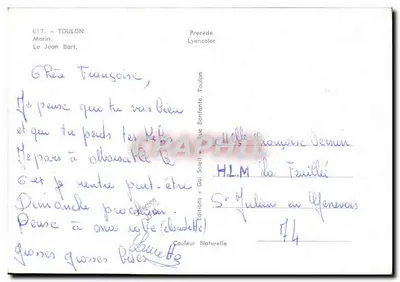 617. - TOULON
Marin.
Le Jean Bart.
Procédé
Lyencolor
Chère Françoise,
Je pense que tu vas bien
et que tu perds tes
Je pars à le
6 et je rentre peut-être
Dimanche prochain.
Pense à ma robe (claudette)
grosses grosses bises
Editions Gai Soleil Rue Bonfante, Toulon
Couleur Naturelle
Mlle Françoise
H.L.M La Feuillée
St Julien en Genevois
74